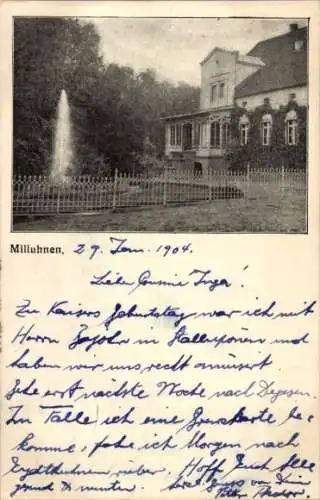 Milluhnen, 29. Jan. 1904.
Liebe Cousine Inga!
Zu Kaisers Geburtstag war ich mit
Herrn in Stallupönen und
haben wir uns recht amüsiert
Gehe erst nächste Woche nach
Im Falle ich eine Grenzkarte be-
komme, fahre ich Morgen nach
Eydtkuhnen rüber. Hoff Euch alle
gesund & munter. Gruss von Deinem